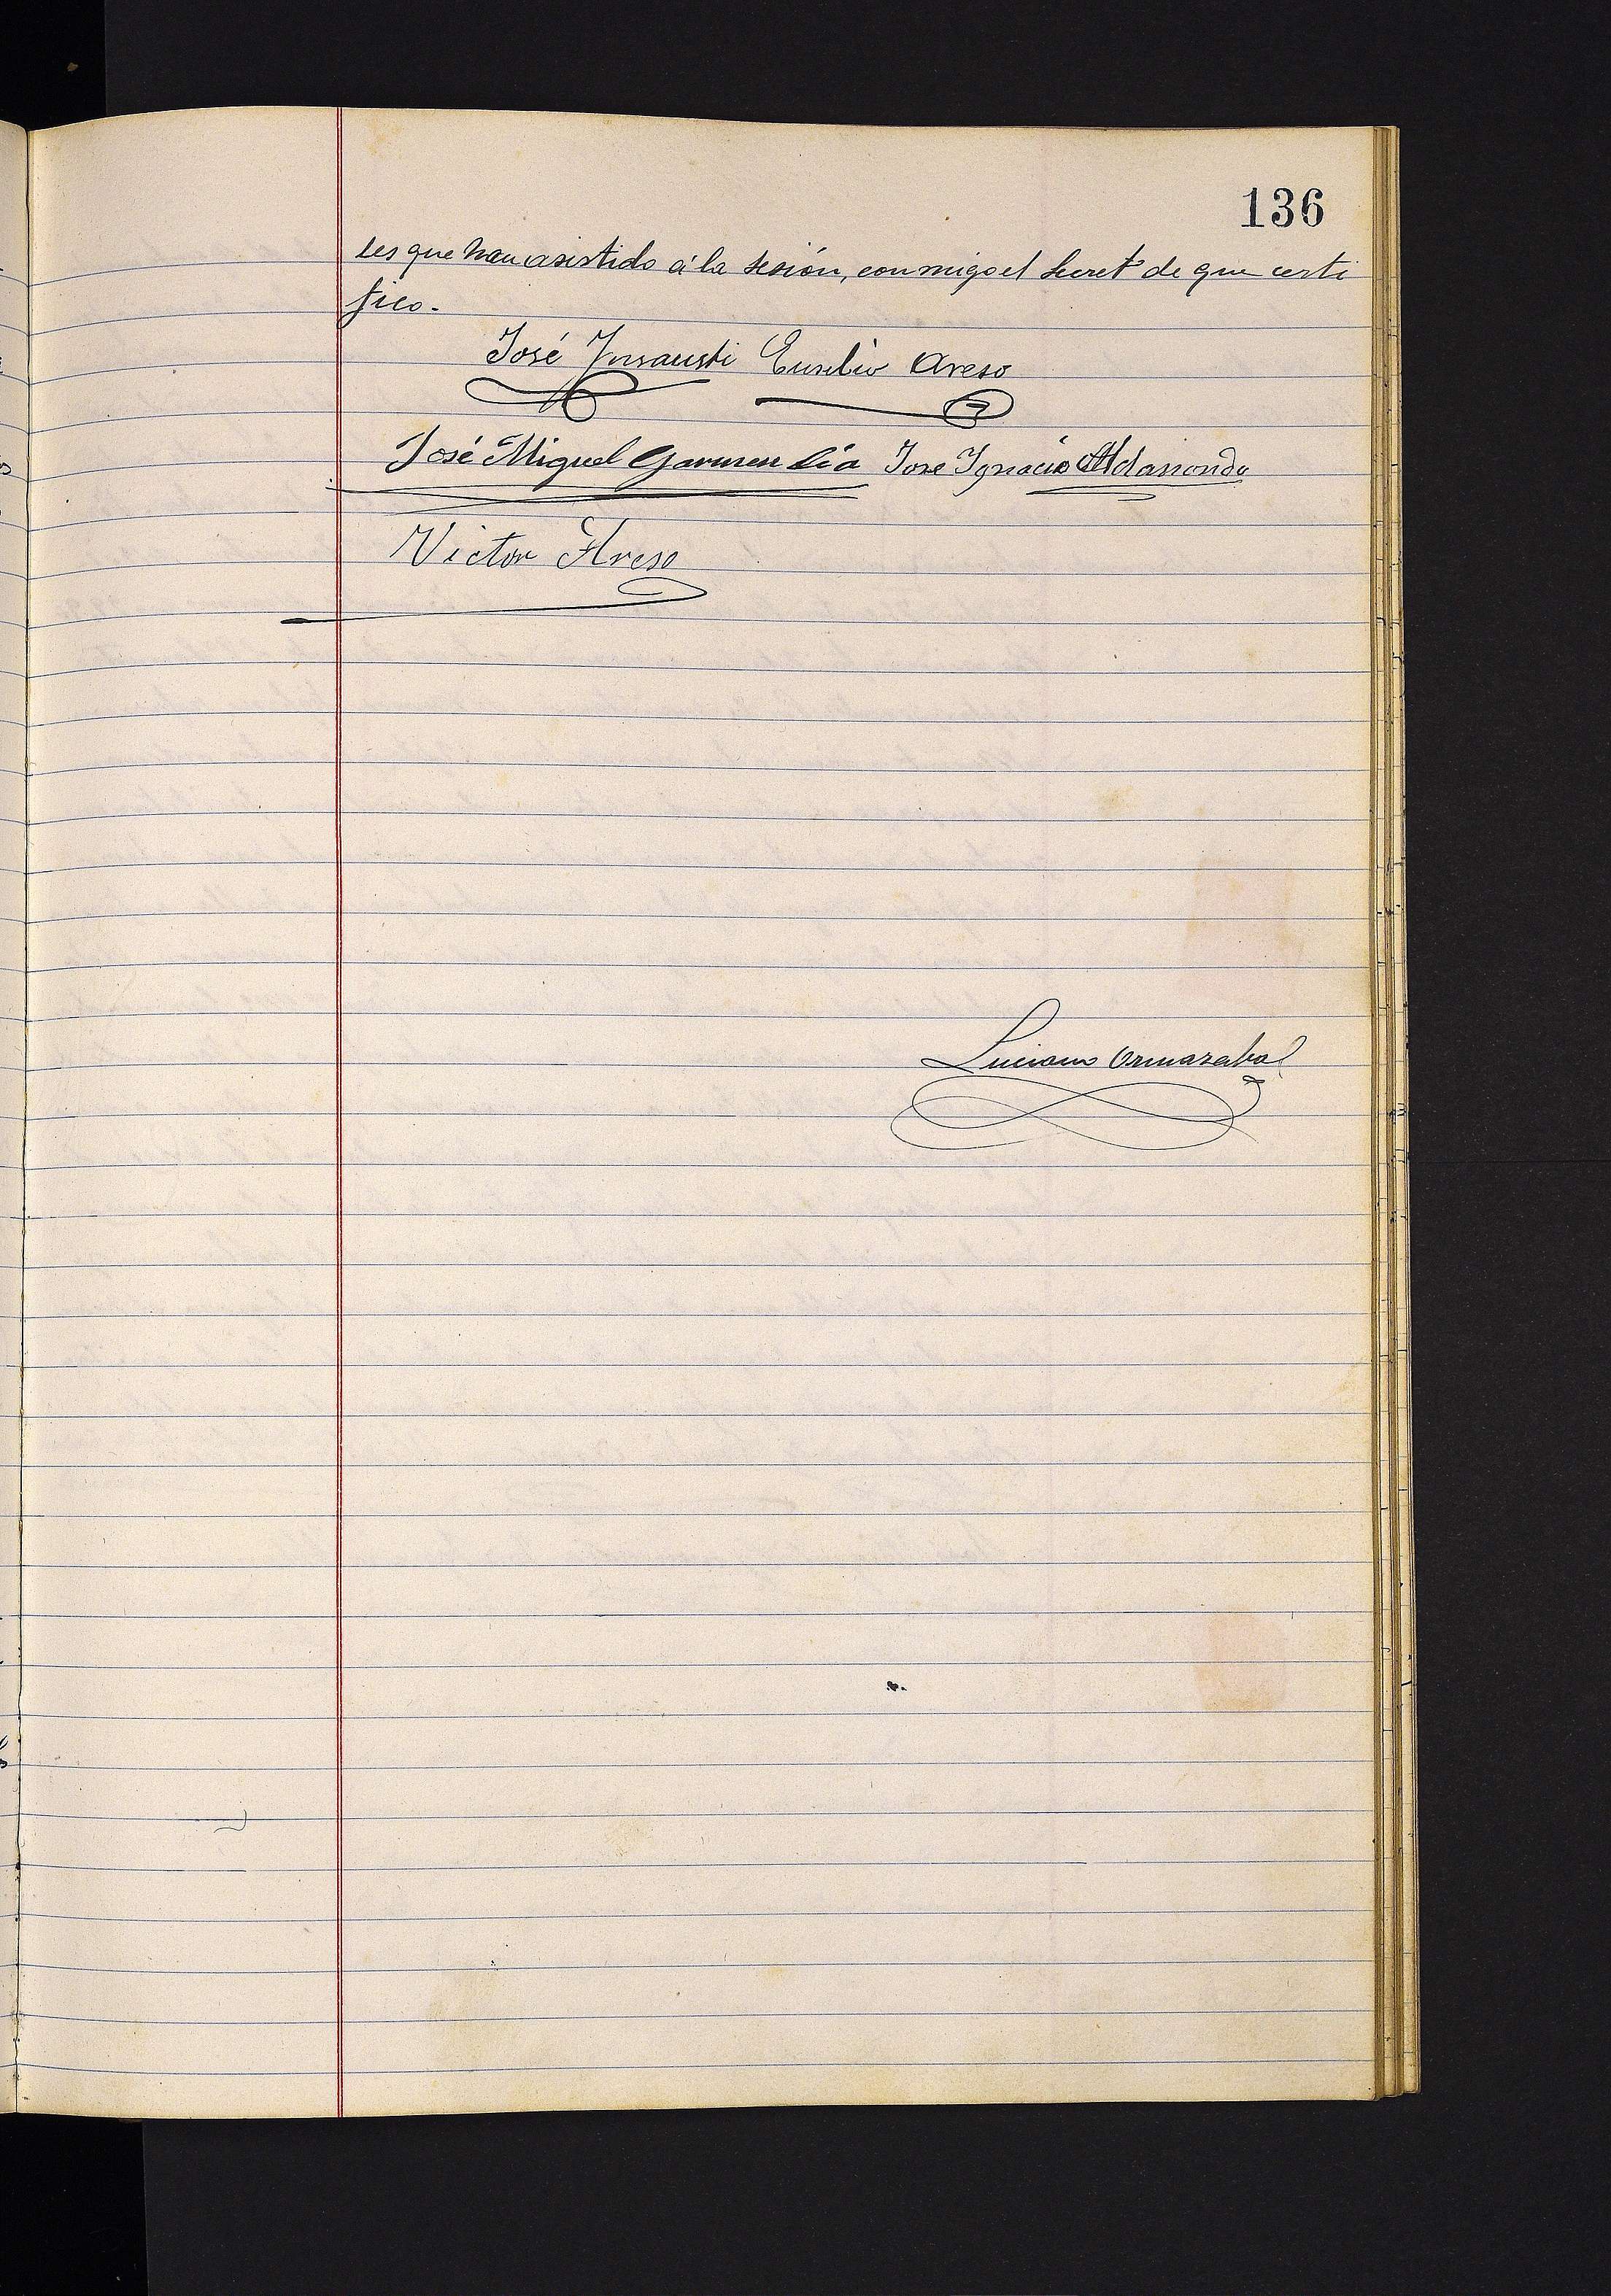 136
les que han asistido á la sesión, conmigo el Secretº de que certi
fico.-
José Insausti Eusebio Areso
José Miguel Garmendia Jose Ignacio Aldasondo
Victor Areso
Luciano Ormazabal